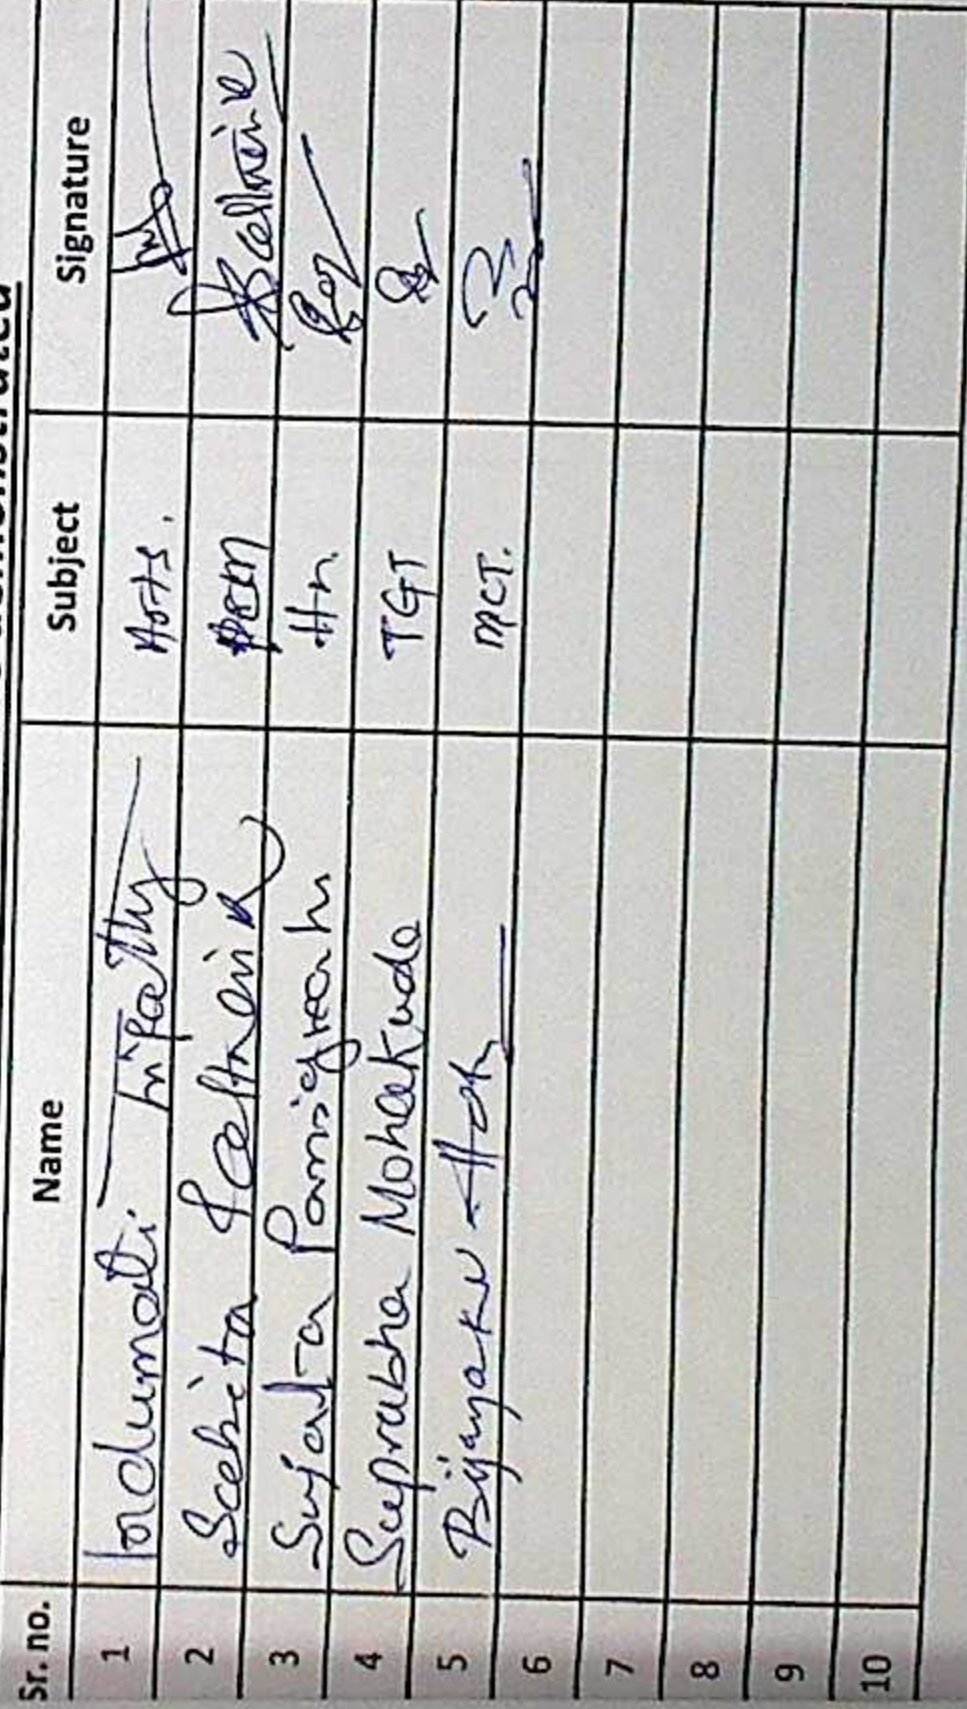 Sr. no. Name Subject Signature
1 Indumati Tripathy Arts.
2 Sabita Pattnaik PCM
3 Sujata Panigrahi Hn
4 Suprabha Mohakuda TGT
5 Bijayaku MCT.
6
7
8
9
10